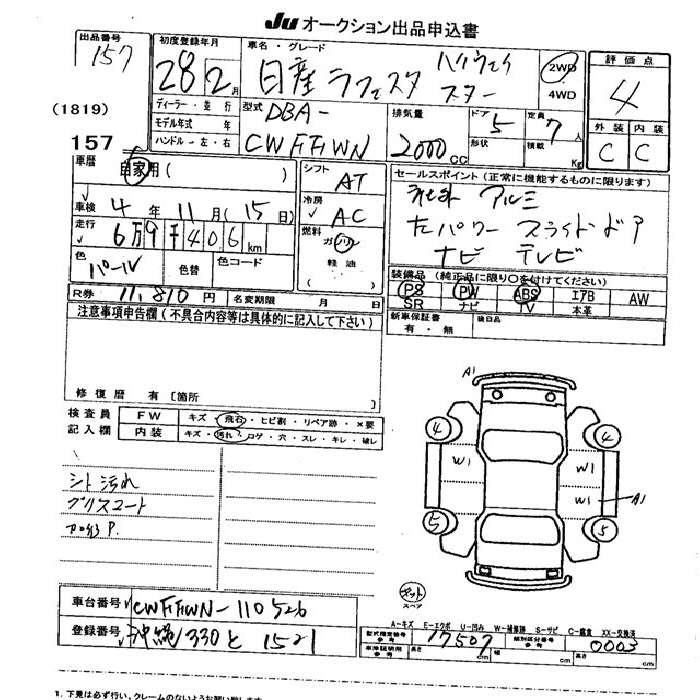 JU オークション出品申込書
出品番号
157
(1819)
157
初度登録年月
28年2月
車名・グレード
日産 ラフェスタ ハイウェイ
スター
2WD
4WD
評価点
4
外装 内装
C C
ディーラー・並行
モデル年式 年
ハンドル-左・右
型式
DBA-
CWFFWN
排気量
2000CC
ドア
5
形状
定員
7人
積載
Kg
車歴
自家用( )
シフト
AT
車検 4年11月(15日)
冷房
AC
走行
6万9千406km
燃料
ガソリン
軽油
色
パール
色替
色コード
セールスポイント(正常に機能するものに限ります)
アルミ
左パワースライドドア
ナビ テレビ
装備品(純正品に限り○を付けてください)
PS PW ABS エアB AW
SR ナビ TV 本革
新車保証書
有・無
後日品
R券 11,810円 名変期限 月 日
注意事項申告欄(不具合内容等は具体的に記入して下さい)
修復歴 有[箇所 ]
検査員
記入欄
FW
キズ・飛石・ヒビ割・リペア跡・×要
内装
キズ・汚れ・コゲ・穴・スレ・キレ・破レ
シート汚れ
グリスコート
A1
4 4
W1 W1
W1 A1
5 5
スペア
A-キズ E-エクボ U-凹み W-補修跡 S-サビ C-腐食 XX-交換済
車台番号 CWFFWN-110526
登録番号 沖縄330と1521
型式指定番号
参考
17507
類別区分番号
参考
0003
車体証明用
参考
長さ cm 幅 cm 高さ cm
11. 下見は必ず行い、クレームのないようお願い致します。